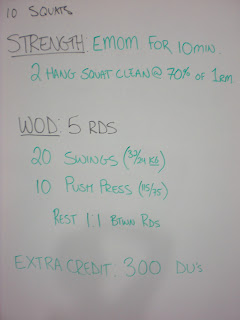 10 SQUATS
STRENGTH: EMOM FOR 10 MIN.
2 HANG SQUAT CLEAN @ 70% OF 1RM
WOD: 5 RDS
20 SWINGS (32/24 KG)
10 PUSH PRESS (115/75)
REST 1:1 BTWN RDS
EXTRA CREDIT: 300 DU's